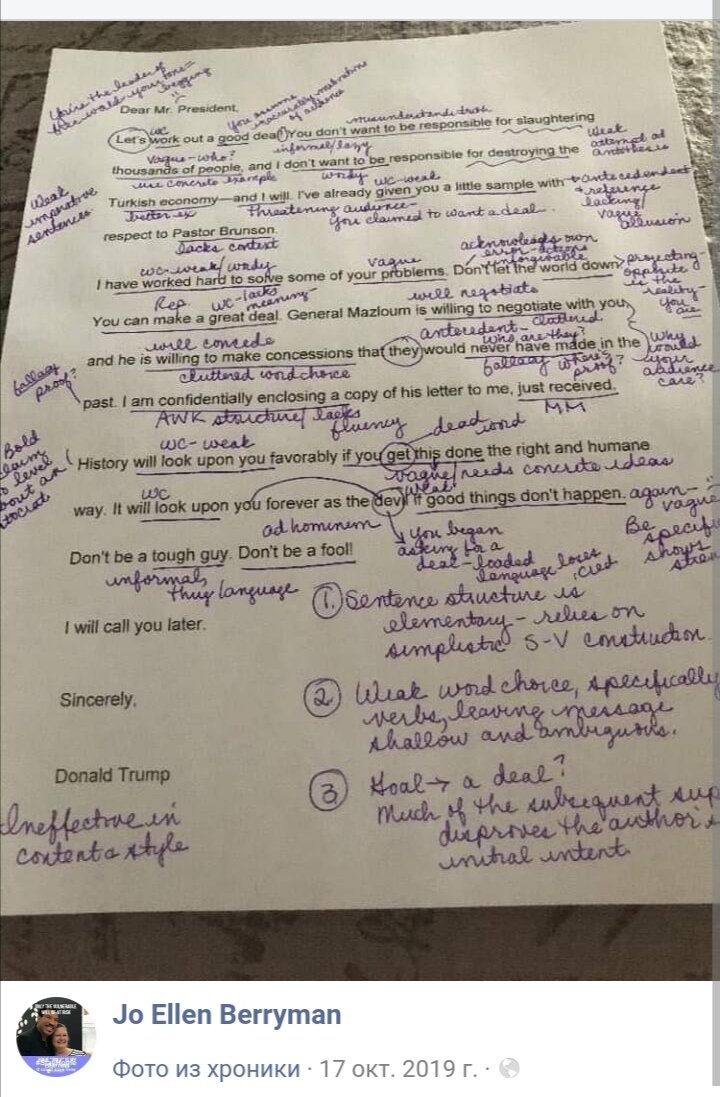 You're the leader of
the world your tone =
begging
Dear Mr. President,
You assume
inaccurately motivations
of audience
misunderstands truth
wc
Let's work out a good deal! You don't want to be responsible for slaughtering
Vague - who?
informal/lazy
Weak
attempt at
antithesis
thousands of people, and I don't want to be responsible for destroying the
use concrete example
wordy
wc-weak
Weak
imperative
sentences
Turkish economy—and I will. I've already given you a little sample with
antecedent
reference
lacking/
vague
allusion
better ex
Threatening audience-
you claimed to want a deal.
respect to Pastor Brunson.
lacks context
acknowledges own
error-actions
unforgivable
wc-weak/wordy
vague
I have worked hard to solve some of your problems. Don't let the world down
projecting-
opposite
is the
reality-
you
are
Rep.
wc-lacks
meaning
will negotiate
You can make a great deal. General Mazloum is willing to negotiate with you,
will concede
antecedent-
who are they?
cluttered
and he is willing to make concessions that they would never have made in the
why
would
your
audience
care?
fallacy
proof?
cluttered word choice
fallacy where's
proof?
past. I am confidentially enclosing a copy of his letter to me, just received.
AWK structure/lacks
fluency
MM
dead word
wc-weak
Bold
claim
to level
about an
History will look upon you favorably if you get this done the right and humane
vague/needs concrete ideas
wc
weak
way. It will look upon you forever as the devil if good things don't happen.
again-
vague
Be
specific
shows
ad hominem
you began
asking for a
deal-loaded
language loses
cred
Don't be a tough guy. Don't be a fool!
informal,
thug language
I will call you later.
1. Sentence structure is
elementary - relies on
simplistic S-V construction.
Sincerely,
2 Weak word choice, specifically
verbs, leaving message
shallow and ambiguous.
Donald Trump
3 Goal → a deal?
Much of the subsequent
disproves the author's
initial intent.
Ineffective in
content & style
Jo Ellen Berryman
Фото из хроники · 17 окт. 2019 г. ·